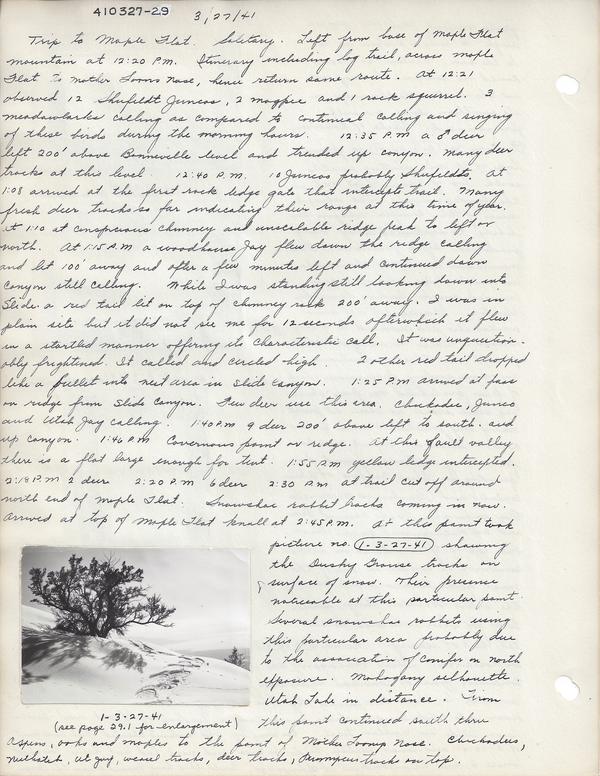 410327-29
3/27/41
Trip to Maple Flat. Solitary. Left from base of Maple Flat
mountain at 12:20 P.M. Itinerary including log trail, across maple
Flat to mother Loons Nose, hence return same route. At 12:21
observed 12 Shufeldt Juncos, 2 magpie and 1 rock squirrel. 3
meadowlarks calling as compared to continual calling and singing
of these birds during the morning hours. 12:35 P.M. a ♂ deer
left 200' above Bonneville level and trended up canyon. Many deer
tracks at this level. 12:40 P.M. 10 Juncos probably Shufeldts. At
1:08 arrived at the first rock ledge gate that intercepts trail. Many
fresh deer tracks so far indicating their range at this time of year.
At 1:10 at conspicious chimney and unscalable ridge peak to left or
north. At 1:15 P.M a woodhouse Jay flew down the ridge calling
and lit 100' away and after a few minutes left and continued down
canyon still calling. While I was standing still looking down into
Slide a red tail lit on top of chimney rock 200' away. I was in
plain site but it did not see me for 12 seconds afterwhich it flew
in a startled manner offering its characteristic call. It was unquestion-
ably frightened. It called and circled high. 2 other red tail dropped
like a bullet into nest area in Slide Canyon. 1:25 P.M arrived at pass
on ridge from Slide Canyon. Few deer use this area. Chickadee, Junco
and Utah Jay calling. 1:40 P.M 9 deer 200' above left to south. and
up canyon. 1:46 P.M Covernous point on ridge. At this valley
there is a flat large enough for tent. 1:55 P.M yellow ledge intercepted.
2:18 P.M 2 deer 2:20 P.M 6 deer 2:30 P.M at trail cut off around
north end of Maple Flat. Snowshoe rabbit tracks coming in now.
Arrived at top of Maple Flat knall at 2:45 P.M. At this point took
picture no. 1-3-27-41 showing
the Dusky Grouse tracks on
surface of snow. Their presence
noticeable at this particular point.
Several snowshoe rabbits using
this particular area probably due
to the association of conifer on north
exposure. Mahogany silhouette.
Utah Lake in distance. From
this point continued south thru
1-3-27-41
(see page 29.1 for enlargement)
aspens, oaks and maples to the point of Mother Loons Nose. Chickadees,
Nuthatch, ut jay, weasel tracks, deer tracks, tracks on top.